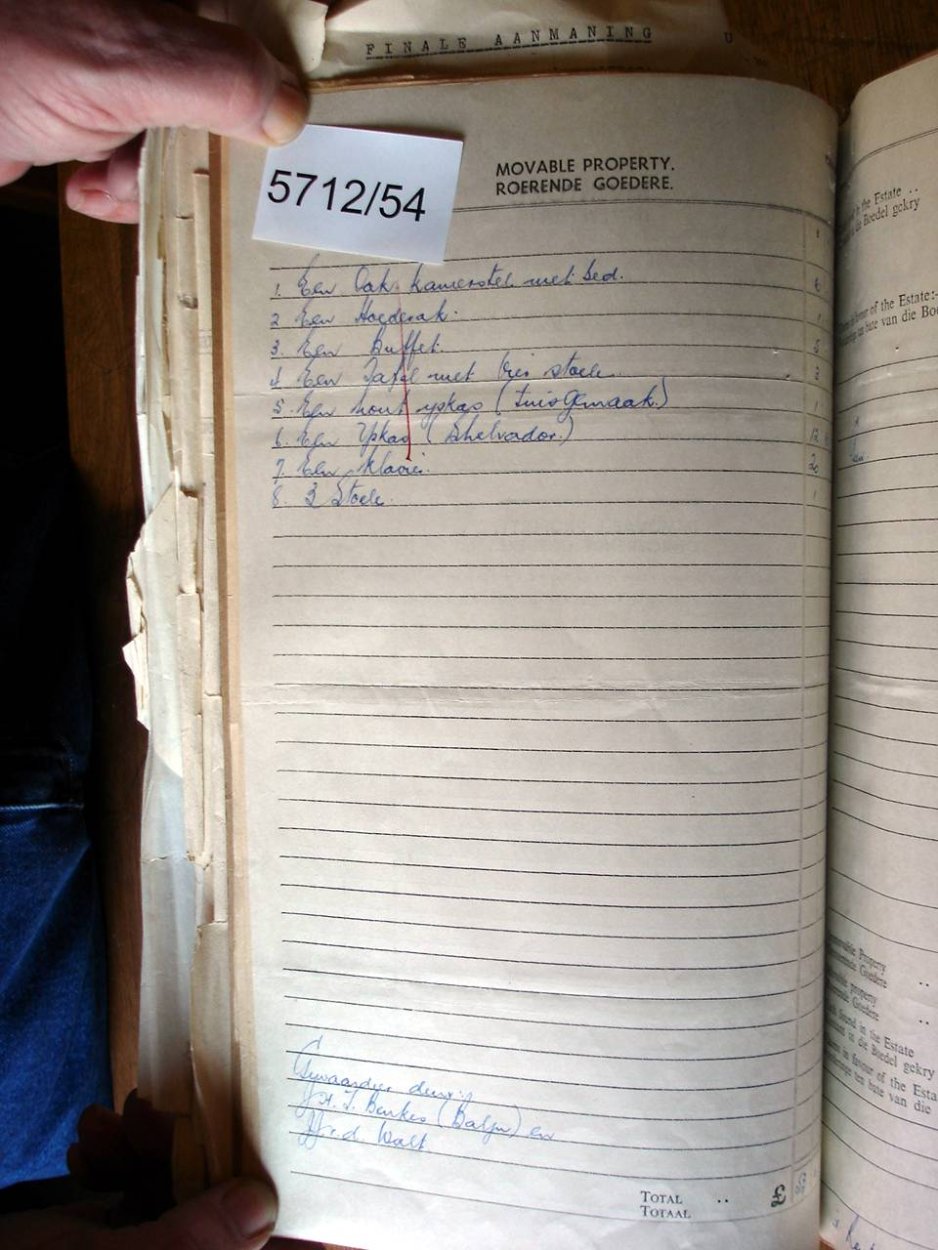 FINALE AANMANING U
5712/54
MOVABLE PROPERTY.
ROERENDE GOEDERE.
1. Een Oak kamerstel met bed. 6
2 Een Hoederak. 1
3. Een Buffet. 5
4 Een Tafel met stoele. 2
5. Een hout yskas (Tuisgemaak) 1
6. Een Yskas (Shelvador) 12
7. Een Klavier. 20
8. 3 Stoele. 1
Gewaardeer deur:-
en
v.d. Walt
TOTAL .. £
TOTAAL
in the Estate ..
die Boedel gekry
favour of the Estate:-
ten bate van die Boe
Property
Goedere ..
property
Goedere ..
found in the Estate
in die Boedel gekry
in favour of the Esta
ten bate van die